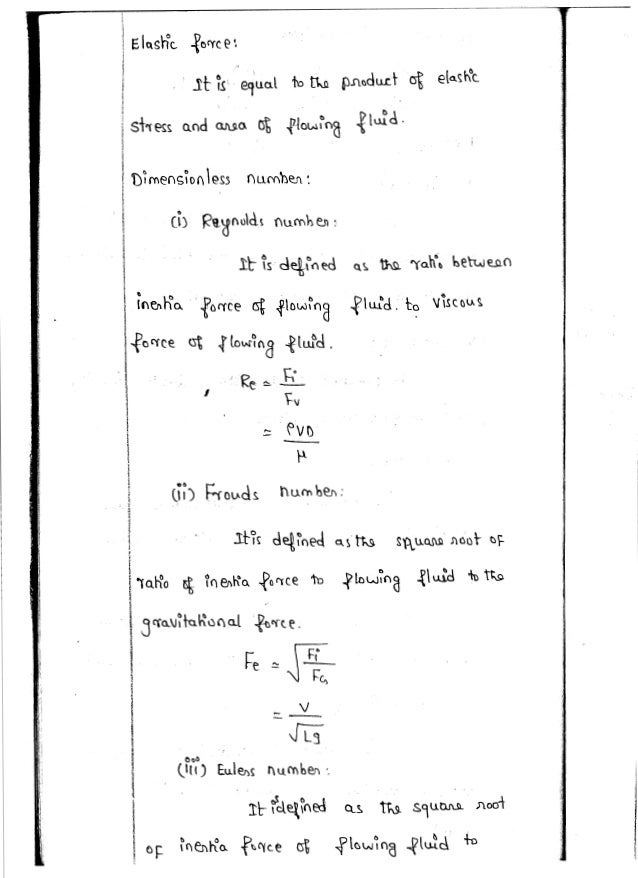 Elastic force:
It is equal to the product of elastic
stress and area of flowing fluid.
Dimensionless number:
(i) Reynolds number:
It is defined as the ratio between
inertia force of flowing fluid. to viscous
force of flowing fluid.
Re = Fi / Fv
= ρVD / μ
(ii) Frouds number:
It is defined as the square root of
ratio of inertia force to flowing fluid to the
gravitational force.
Fe = √(Fi / FG)
= V / √Lg
(iii) Eulers number:
It is defined as the square root
of inertia force of flowing fluid to